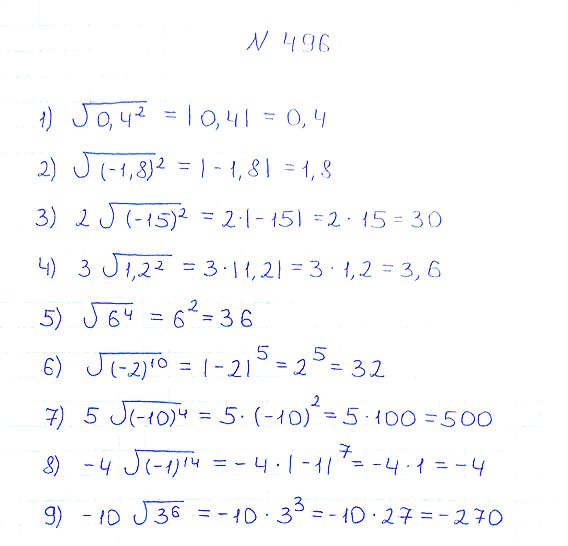 N 496
1) √0,4² = |0,4| = 0,4
2) √(-1,8)² = |-1,8| = 1,8
3) 2 √(-15)² = 2·|-15| = 2·15 = 30
4) 3 √1,2² = 3·|1,2| = 3·1,2 = 3,6
5) √6⁴ = 6² = 36
6) √(-2)¹⁰ = |-2|⁵ = 2⁵ = 32
7) 5 √(-10)⁴ = 5·(-10)² = 5·100 = 500
8) -4 √(-1)¹⁴ = -4·|-1|⁷ = -4·1 = -4
9) -10 √3⁶ = -10·3³ = -10·27 = -270